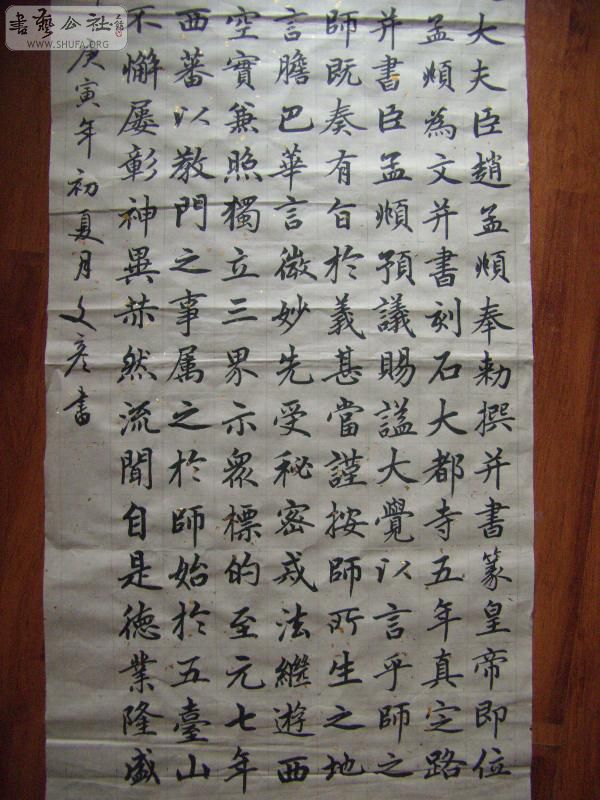 大夫臣趙孟頫奉勅撰并書篆皇帝即位
孟頫為文并書刻石大都寺五年真定路
并書臣孟頫預議賜謚大覺以言乎師之
師既奏有旨於義甚當謹按師所生之地
言膽巴華言微妙先受秘密戒法繼遊西
空實兼照獨立三界示眾標的至元七年
西蕃以教門之事属之於師始於五臺山
不懈屡彰神異赫然流聞自是德業隆盛
庚寅年初夏月文彥書
書藝公社
WWW.SHUFA.ORG